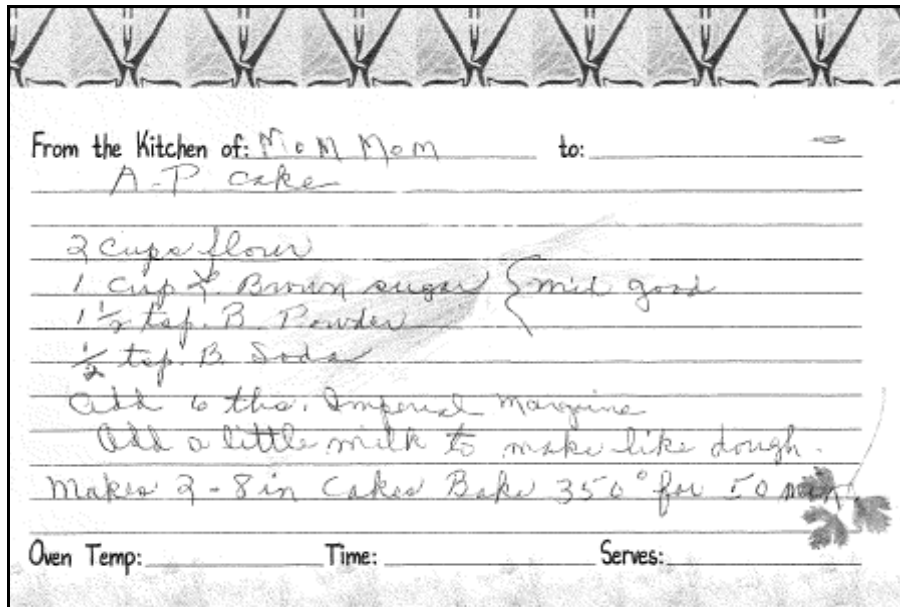 From the Kitchen of: Mom Mom to:
A-P cake
2 cups flour
1 cup L. Brown sugar { mix good
1 1/2 tsp. B. Powder
1/2 tsp. B. Soda
Add 6 tbs. Imperial Margarine
Add a little milk to make like dough.
Makes 2-8 in Cakes Bake 350° for 50 min.
Oven Temp: Time: Serves: